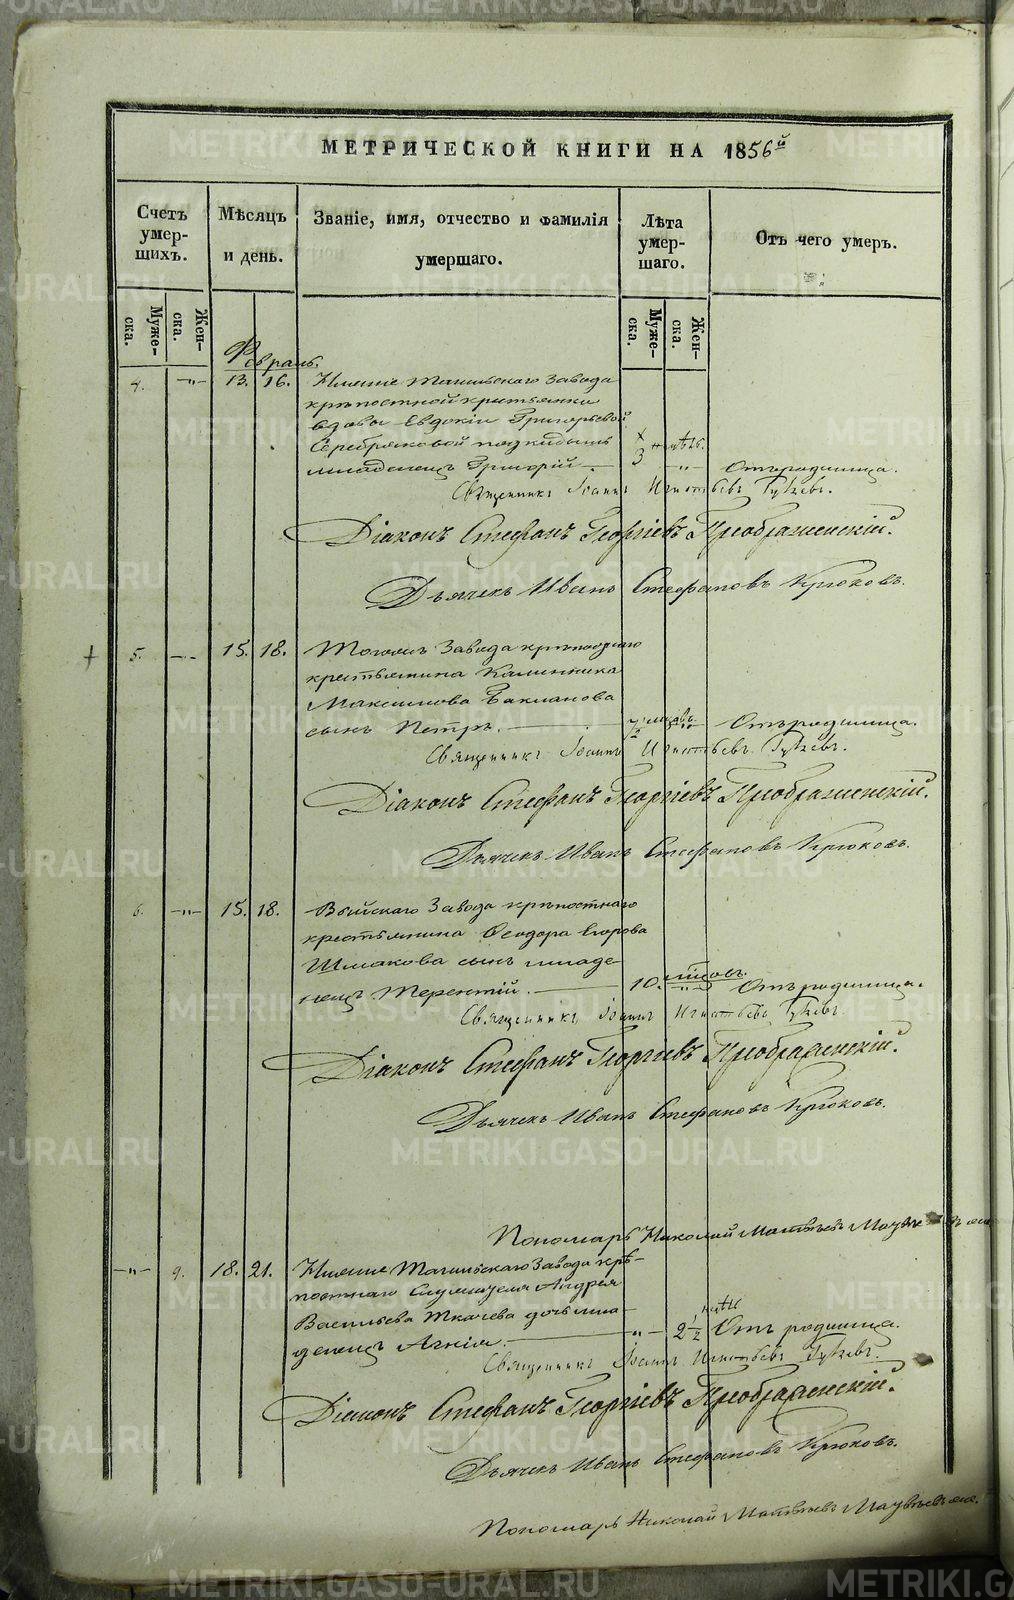 МЕТРИЧЕСКОЙ КНИГИ НА 1856й
Счетъ умер-щихъ.
Мѣсяцъ и день.
Званіе, имя, отчество и фамилія умершаго.
Лѣта умер-шаго.
Отъ чего умеръ.
Муже-ска.
Жен-ска.
Муже-ска.
Жен-ска.
Февраль.
4. -„- 13. 16. Нижне Тагильскаго Завода
крѣпостной крестьянки
вдовы Евдокіи Григорьевой
Серебряковой подкидышъ
младенецъ Григорій -„- Отъ родимца.
Священникъ Іоаннъ Игнатьевъ
Діаконъ Стефанъ Георгіевъ Преображенскій.
Дьячекъ Иванъ Стефановъ Крюковъ.
5. 15. 18. Тогожъ Завода крѣпостнаго
крестьянина Калинника
Максимова Бакланова
сынъ Петръ. Отъ родимца.
Священникъ Іоаннъ Игнатьевъ
Діаконъ Стефанъ Георгіевъ Преображенскій.
Дьячекъ Иванъ Стефановъ Крюковъ.
6. -„- 15. 18. Выйскаго Завода крѣпостнаго
крестьянина Ѳеодора Егорова
Шмакова сынъ младе-
нецъ Терентій. 10. Отъ родимца.
Священникъ Іоаннъ Игнатьевъ
Діаконъ Стефанъ Георгіевъ Преображенскій.
Дьячекъ Иванъ Стефановъ Крюковъ.
Пономарь Николай Матвѣевъ
-„- 9. 18. 21. Нижне Тагильскаго Завода крѣ-
постнаго Служителя Андрея
Васильева Ткачева дочь мла-
денецъ Агнія. -„- 2 1/2 Отъ родимца.
Священникъ Іоаннъ Игнатьевъ
Діаконъ Стефанъ Георгіевъ Преображенскій.
Дьячекъ Иванъ Стефановъ Крюковъ.
Пономарь Николай Матвѣевъ
METRIKI.GASO-URAL.RU